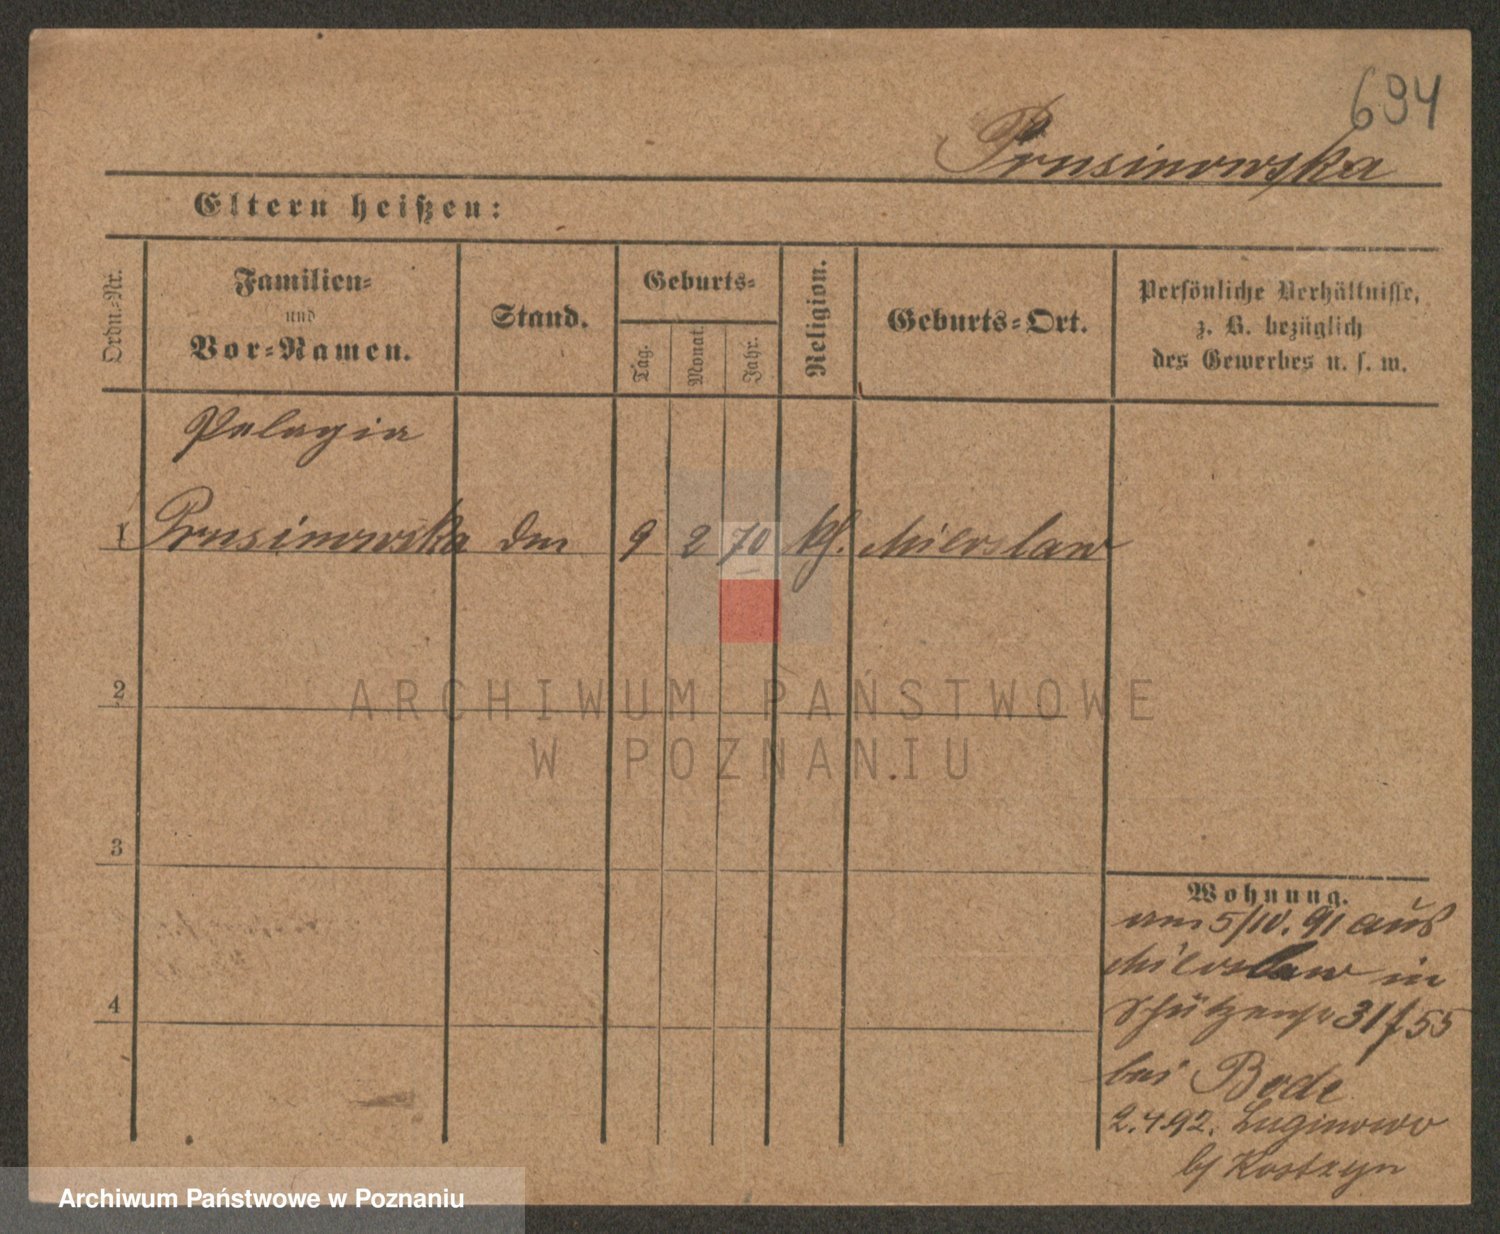 694
Prusinowska
Eltern heißen:
Ordn.-Nr.
Familien-
und
Vor-Namen.
Stand.
Geburts-
Tag.
Monat.
Jahr.
Religion.
Geburts-Ort.
Persönliche Verhältnisse,
z. B. bezüglich
des Gewerbes u. s. w.
Pelagia
1 Prusinowska 9 2 70 kh. Miloslaw
2
ARCHIWUM PAŃSTWOWE
W POZNANIU
3
Wohnung.
am 5/10. 91 aus
Miloslaw in
4
Schützenstr 31/f. 55
bei Bode
2.4.92. Luginowo
b/ Kostzyn
Archiwum Państwowe w Poznaniu